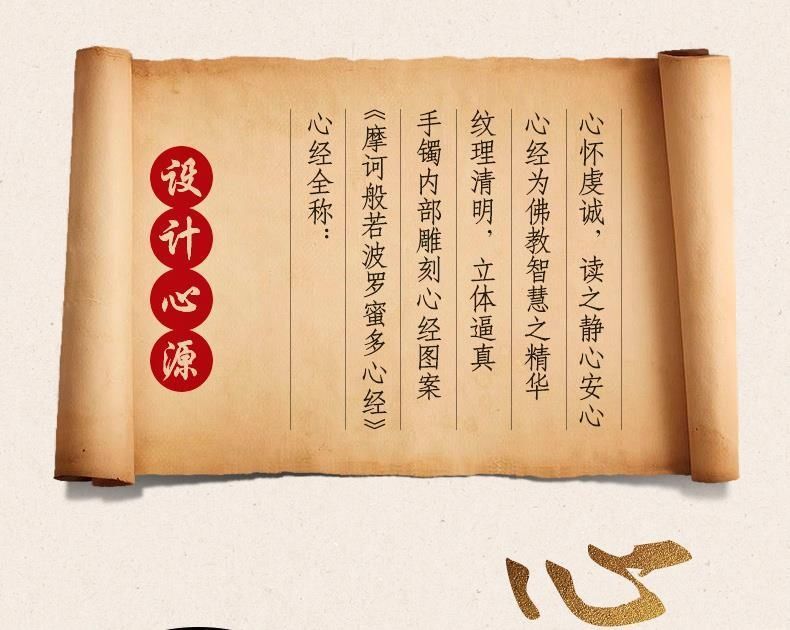 设计心源
心经全称：
《摩诃般若波罗蜜多心经》
手镯内部雕刻心经图案
纹理清明，立体逼真
心经为佛教智慧之精华
心怀虔诚，读之静心安心
心